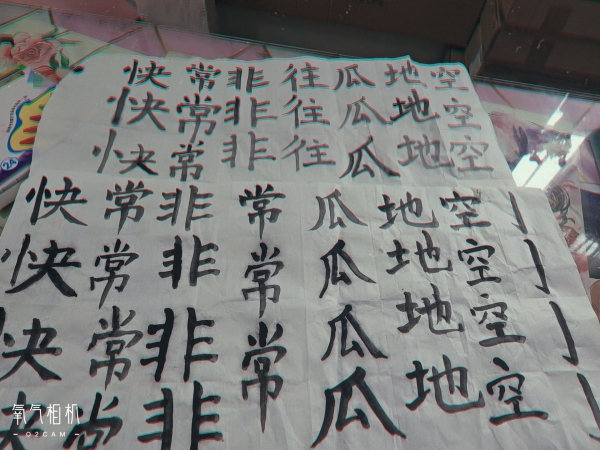 快常非往瓜地空
快常非往瓜地空
快常非往瓜地空
快常非常瓜地空
快常非常瓜地空
快常非常瓜地空
非瓜地空
氧气相机
– O2CAM –